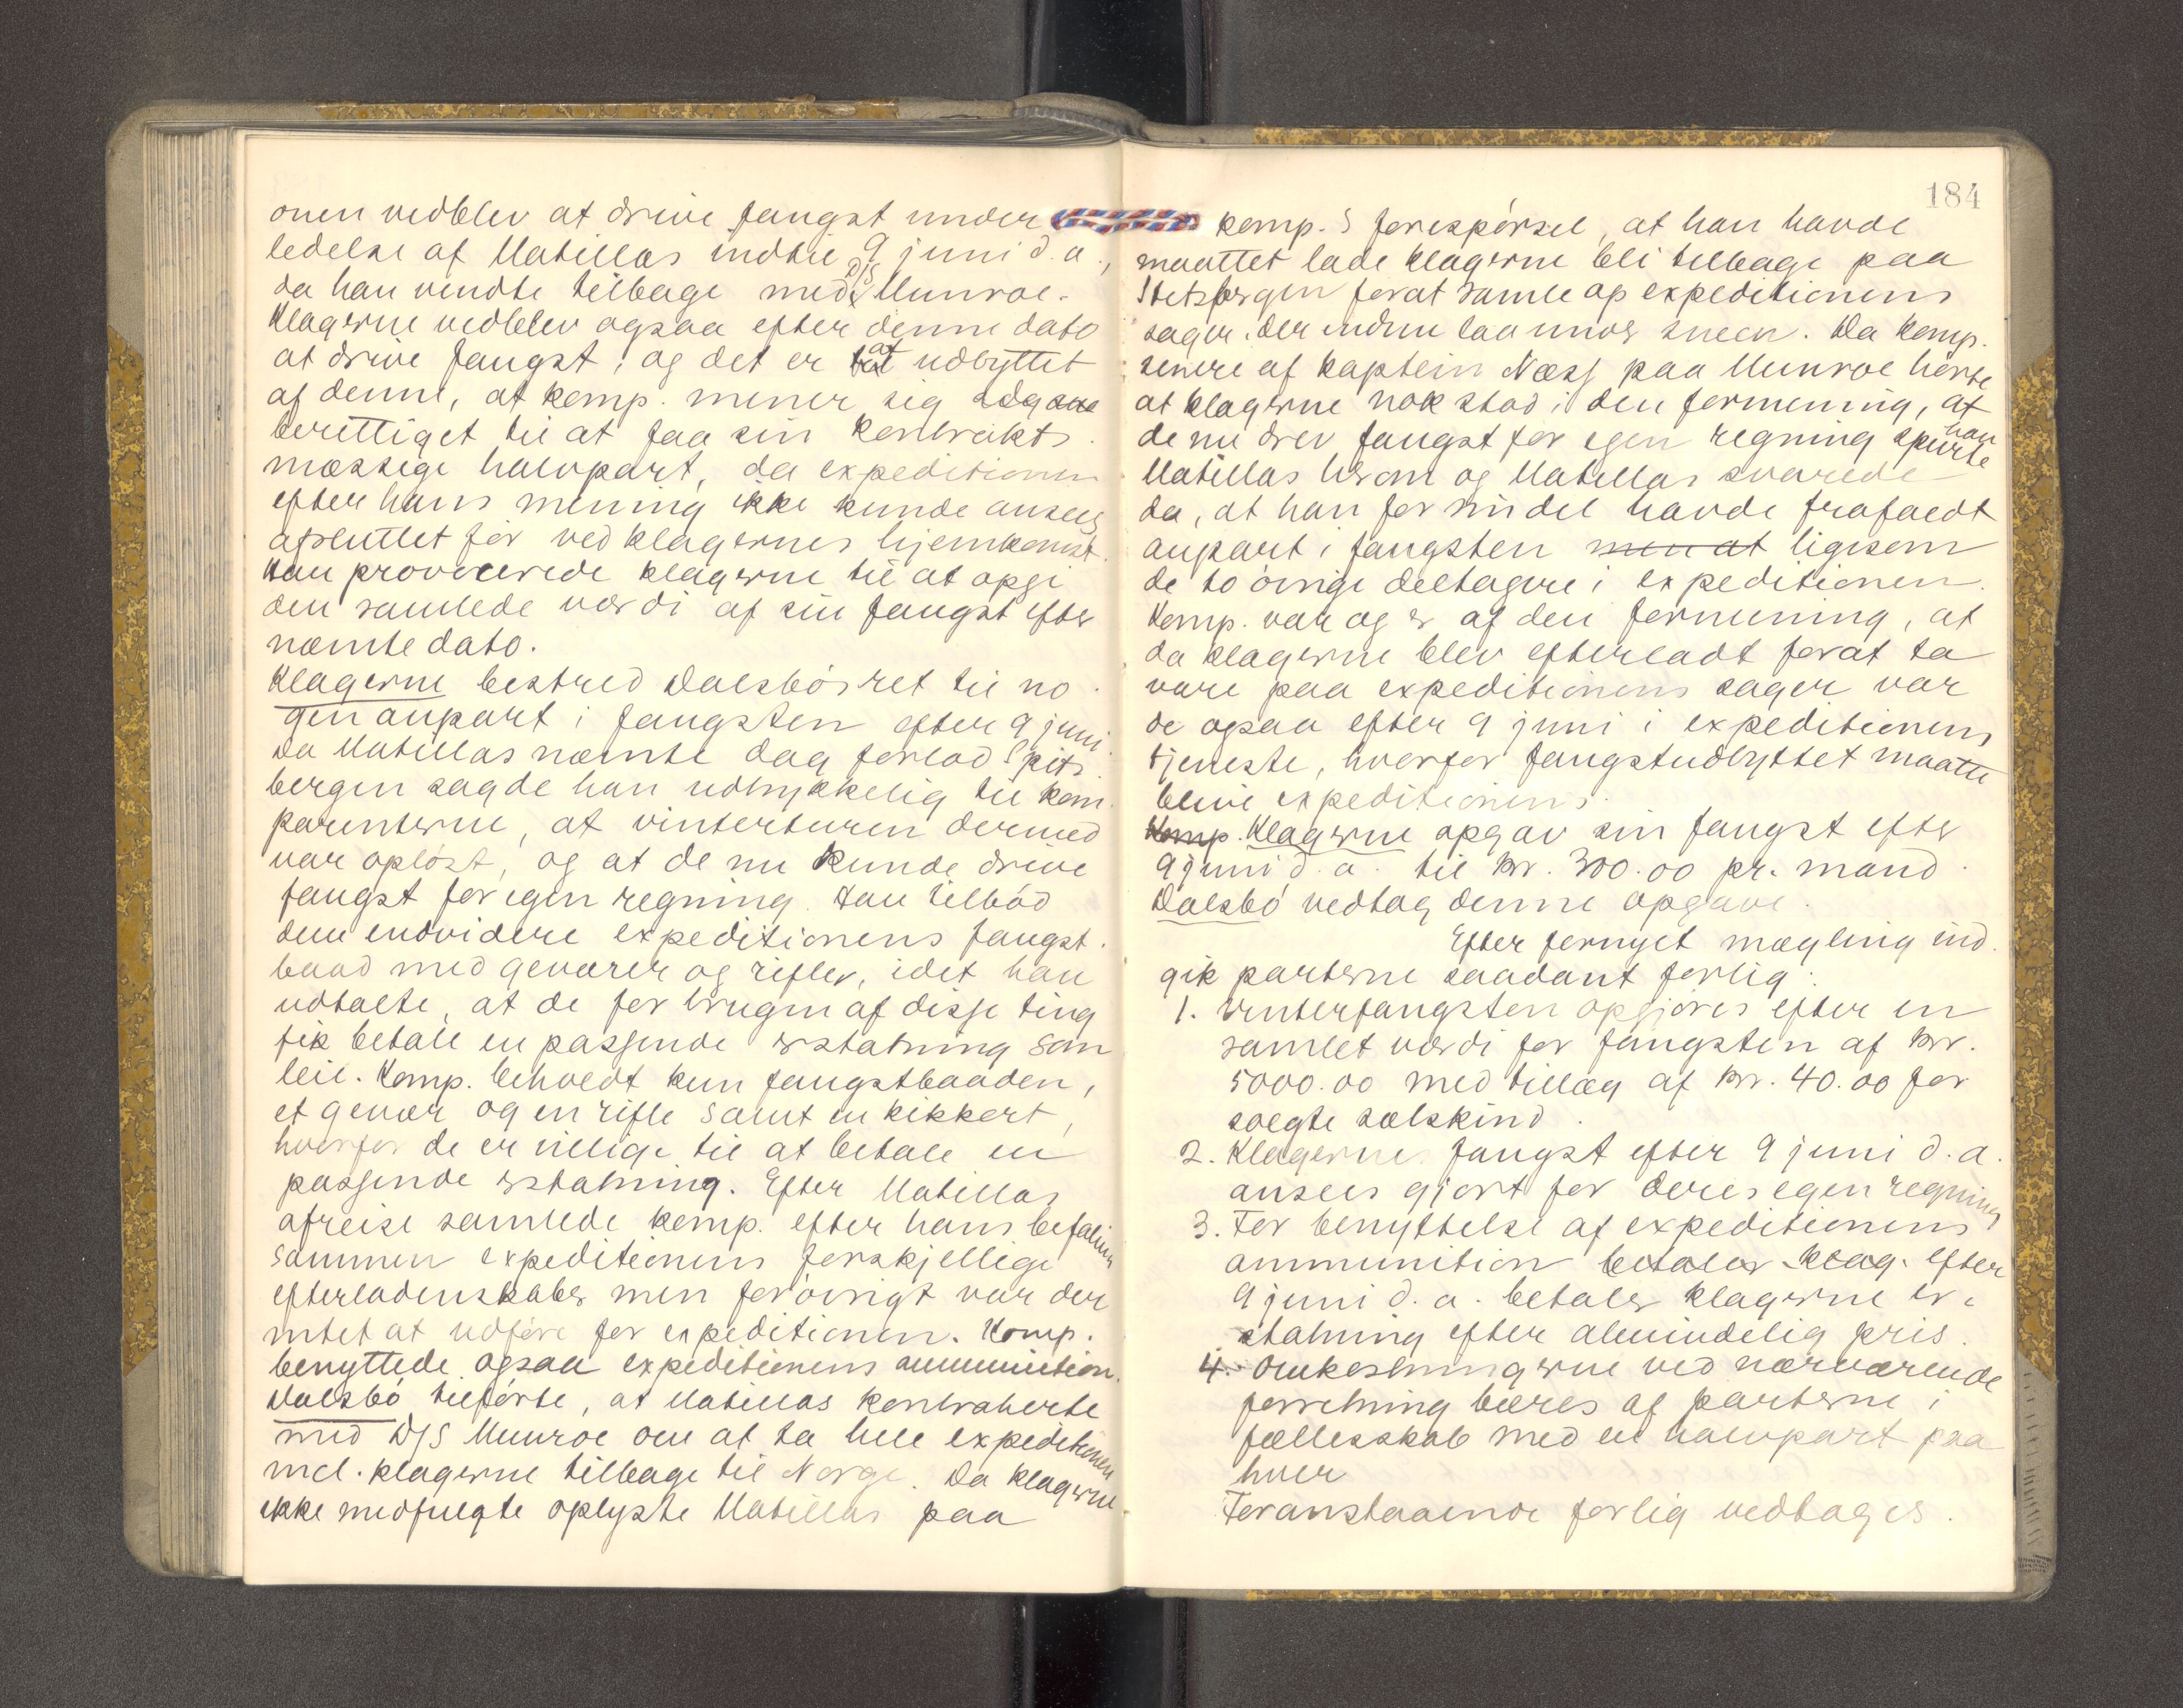 onen vedblev at drive fangst under
ledelse af Matillas indtil 9 juni d. a.,
da han vendte tilbage med D/S Munroe.
Klagerne vedblev ogsaa efter denne dato
at drive fangst, og det er at udbyttet
af denne, at komp. mener sig
berettiget til at faa sin kontrakts
mæssige halvpart, da expeditionen
efter hans mening ikke kunde ansees
afsluttet før ved klagernes hjemkomst.
Han provocerede klagerne til at opgi
den samlede værdi af sin fangst efter
næmte dato.
Klagerne bestred Dalsbös ret til no
gen anpart i fangsten efter 9 juni.
Da Matillas næmte dag forlod Spits
bergen sagde han udtrykkelig til kom
parenterne, at vinterturen dermed
var opløst, og at de nu kunde drive
fangst for egen regning. Han tilbød
dem endvidere expeditionens fangst
baad med geværer og rifler, idet han
udtalte, at de for brugen af disse ting
fik betale en passende erstatning som
leie. Komp. beholdt kun fangstbaaden,
et gevær og en rifle samt en kikkert,
hvorfor de er villige til at betale en
passende erstatning. Efter Matillas
afreise samlede komp. efter hans befaling
sammen expeditionens forskjellige
efterladenskaber men forøvrigt var der
intet at udføre for expeditionen. Komp.
benyttede ogsaa expeditionens ammunition.
Dalsbö tilførte, at Matillas kontraherte
med D/S Munroe om at ta hele expeditionen
incl. klagerne tilbage til Norge. Da klagerne
ikke medfulgte oplyste Matillas paa
184
komp.s forespørsel, at han havde
maattet lade klagerne bli tilbage paa
Spetsbergen forat samle op expeditionens
sager, der endnu laa under sneen. Da komp.
senere af kaptein Næss paa Munroe hørte
at klagerne nok stod i den formening, at
de nu drev fangst for egen regning spurte han
Matillas herom og Matillas svarede
da, at han for sin del havde frafaldt
anpart i fangsten men at ligesom
de to øvrige deltagere i expeditionen.
Komp. var og er af den formening, at
da klagerne blev efterladt forat ta
vare paa expeditionens sager var
de ogsaa efter 9 juni i expeditionens
tjeneste, hvorfor fangstudbyttet maatte
blive expeditionens.
Komp. Klagerne opgav sin fangst efter
9 juni d. a. til kr. 300.00 pr. mand.
Dalsbö vedtog denne opgave.
Efter fornyet mægling ind
gik parterne saadant forlig:
1. Vinterfangsten opgjøres efter en
samlet værdi for fangsten af kr.
5000.00 med tillæg af kr. 40.00 for
solgte sælskind.
2. Klagernes fangst efter 9 juni d. a.
ansees gjort for deres egen regning
3. For benyttelse af expeditionens
ammunition betaler klag. efter
9 juni d. a. betaler klagerne er-
statning efter almindelig pris.
4. Omkostningerne ved nærværende
forretning bæres af parterne i
fællesskab med en halvpart paa
hver
Foranstaaende forlig vedtages.